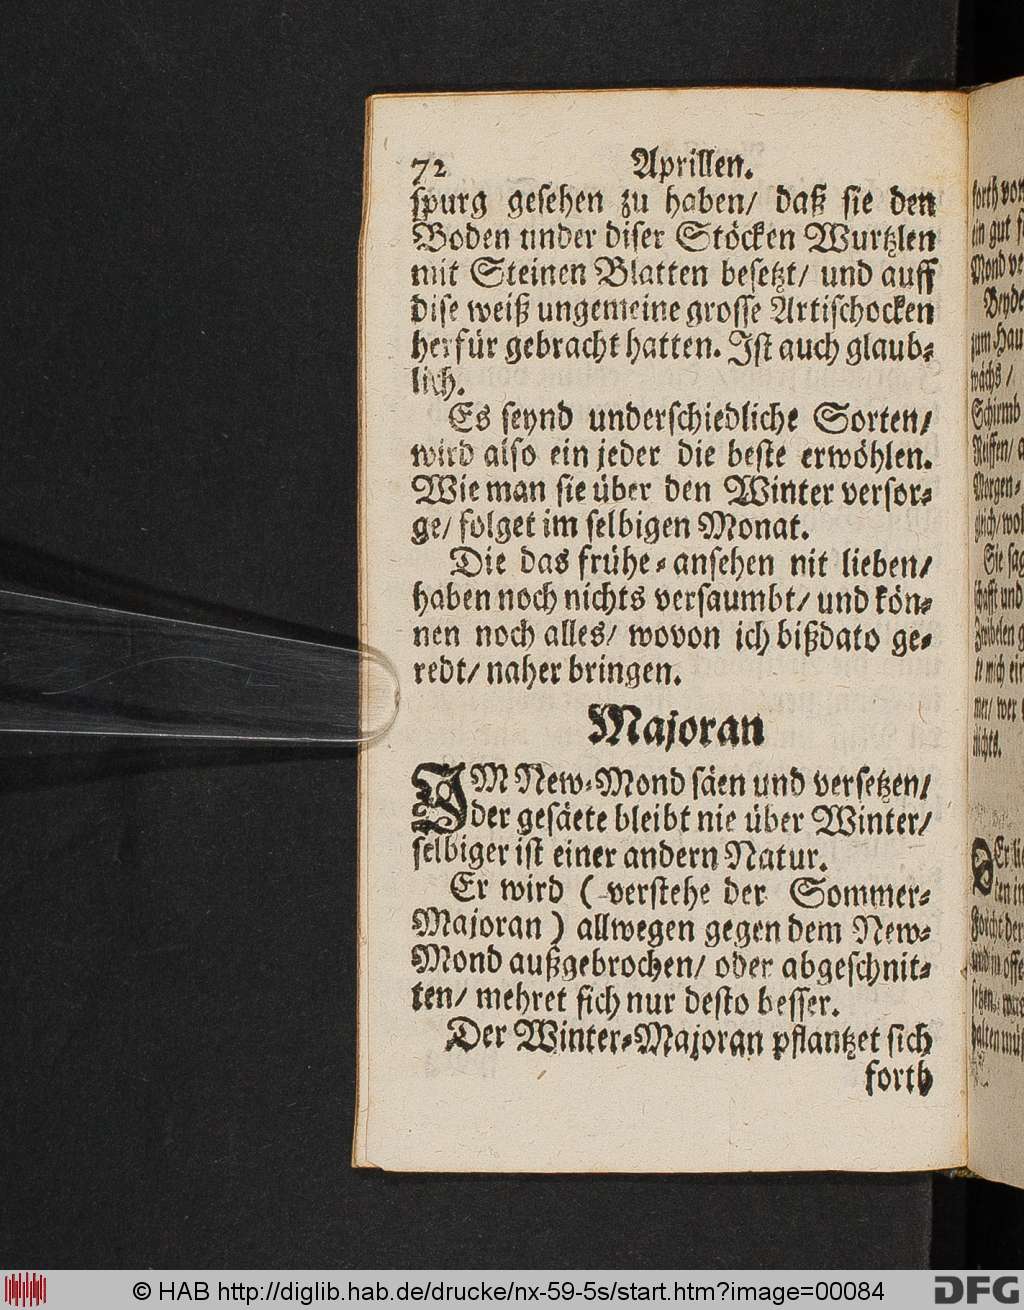 72 Aprillen.
spurg gesehen zu haben/ daß sie den
Boden under diser Stöcken Wurtzlen
mit Steinen Blatten besetzt/ und auff
dise weiß ungemeine grosse Artischocken
herfür gebracht hatten. Ist auch glaub-
lich.
Es seynd underschiedliche Sorten/
wird also ein jeder die beste erwöhlen.
Wie man sie über den Winter versor-
ge/ folget im selbigen Monat.
Die das frühe-ansehen nit lieben/
haben noch nichts versaumbt/ und kön-
nen noch alles/ wovon ich bißdato ge-
redt/ naher bringen.
Majoran
IM New-Mond säen und versetzen/
der gesäete bleibt nie über Winter/
selbiger ist einer andern Natur.
Er wird (verstehe der Sommer-
Majoran) allwegen gegen dem New-
Mond außgebrochen/ oder abgeschnit-
ten/ mehret sich nur desto besser.
Der Winter-Majoran pflantzet sich
forth
forth von
ein gut
Mond
zum Hau
wächs/
Schirmb
Reiffen/
Morgen-
gleich/
Sie sag
schafft und
Zwibelen
mich ein
mer/ wer
nichts.
Forcht der
halten
© HAB http://diglib.hab.de/drucke/nx-59-5s/start.htm?image=00084
DFG